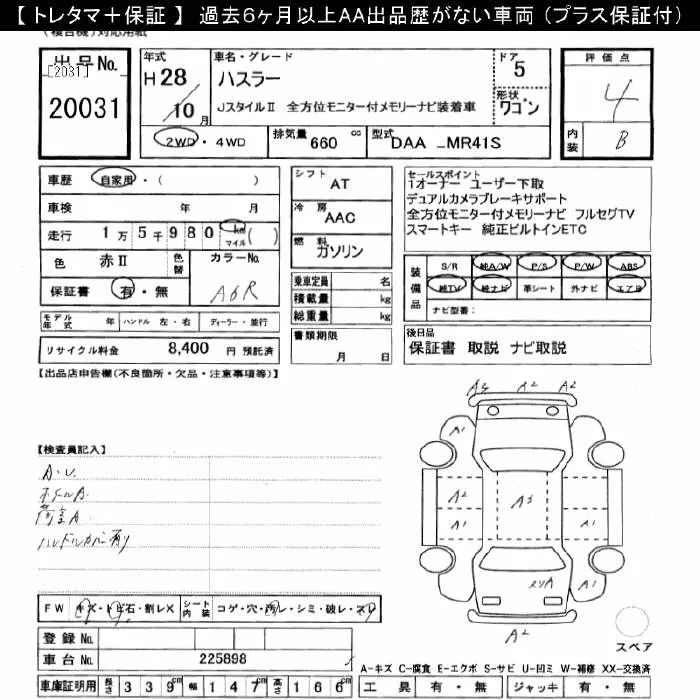 【トレタマ＋保証】 過去6ヶ月以上AA出品歴がない車両（プラス保証付）
(複合機)対応用紙
出品No.
[2031]
20031
年式
H28
10月
車名・グレード
ハスラー
JスタイルⅡ 全方位モニター付メモリーナビ装着車
ドア
5
形状
ワゴン
評価点
4
内装
B
2WD・4WD
排気量 660 cc
型式 DAA_MR41S
車歴 自家用・( )
車検 年 月
走行 1万5千980 km マイル ( )
色 赤Ⅱ 色替 カラーNo.
保証書 有・無 A6R
モデル年式 年 ハンドル 左・右 ディーラー・並行
リサイクル料金 8,400 円 預託済
シフト AT
冷房 AAC
燃料 ガソリン
乗車定員 名
積載量 kg
総重量 kg
書類期限
月 日
セールスポイント
1オーナー ユーザー下取
デュアルカメラブレーキサポート
全方位モニター付メモリーナビ フルセグTV
スマートキー 純正ビルトインETC
装備品
S/R 純A/W P/S P/W ABS
純TV 純ナビ 革シート 外ナビ エアB
ナビ型番:
後日品
保証書 取説 ナビ取説
【出品店申告欄(不良箇所・欠品・注意事項等)】
【検査員記入】
A・U.
ホイールA.
荷室A
ハンドルカバー有り
A2 A2
A1 A1
A2 A3 A2
A1 A1
メリA A1
A2
スペア
FW キズ・トビ石・割レX シート内装 コゲ・穴・汚レ・シミ・破レ・スリ
登録No.
車台No. 225898
A-キズ C-腐食 E-エクボ S-サビ U-凹ミ W-補修 XX-交換済
車庫証明用 長さ 339cm 幅 147cm 高さ 166cm 工具 有・無 ジャッキ 有・無